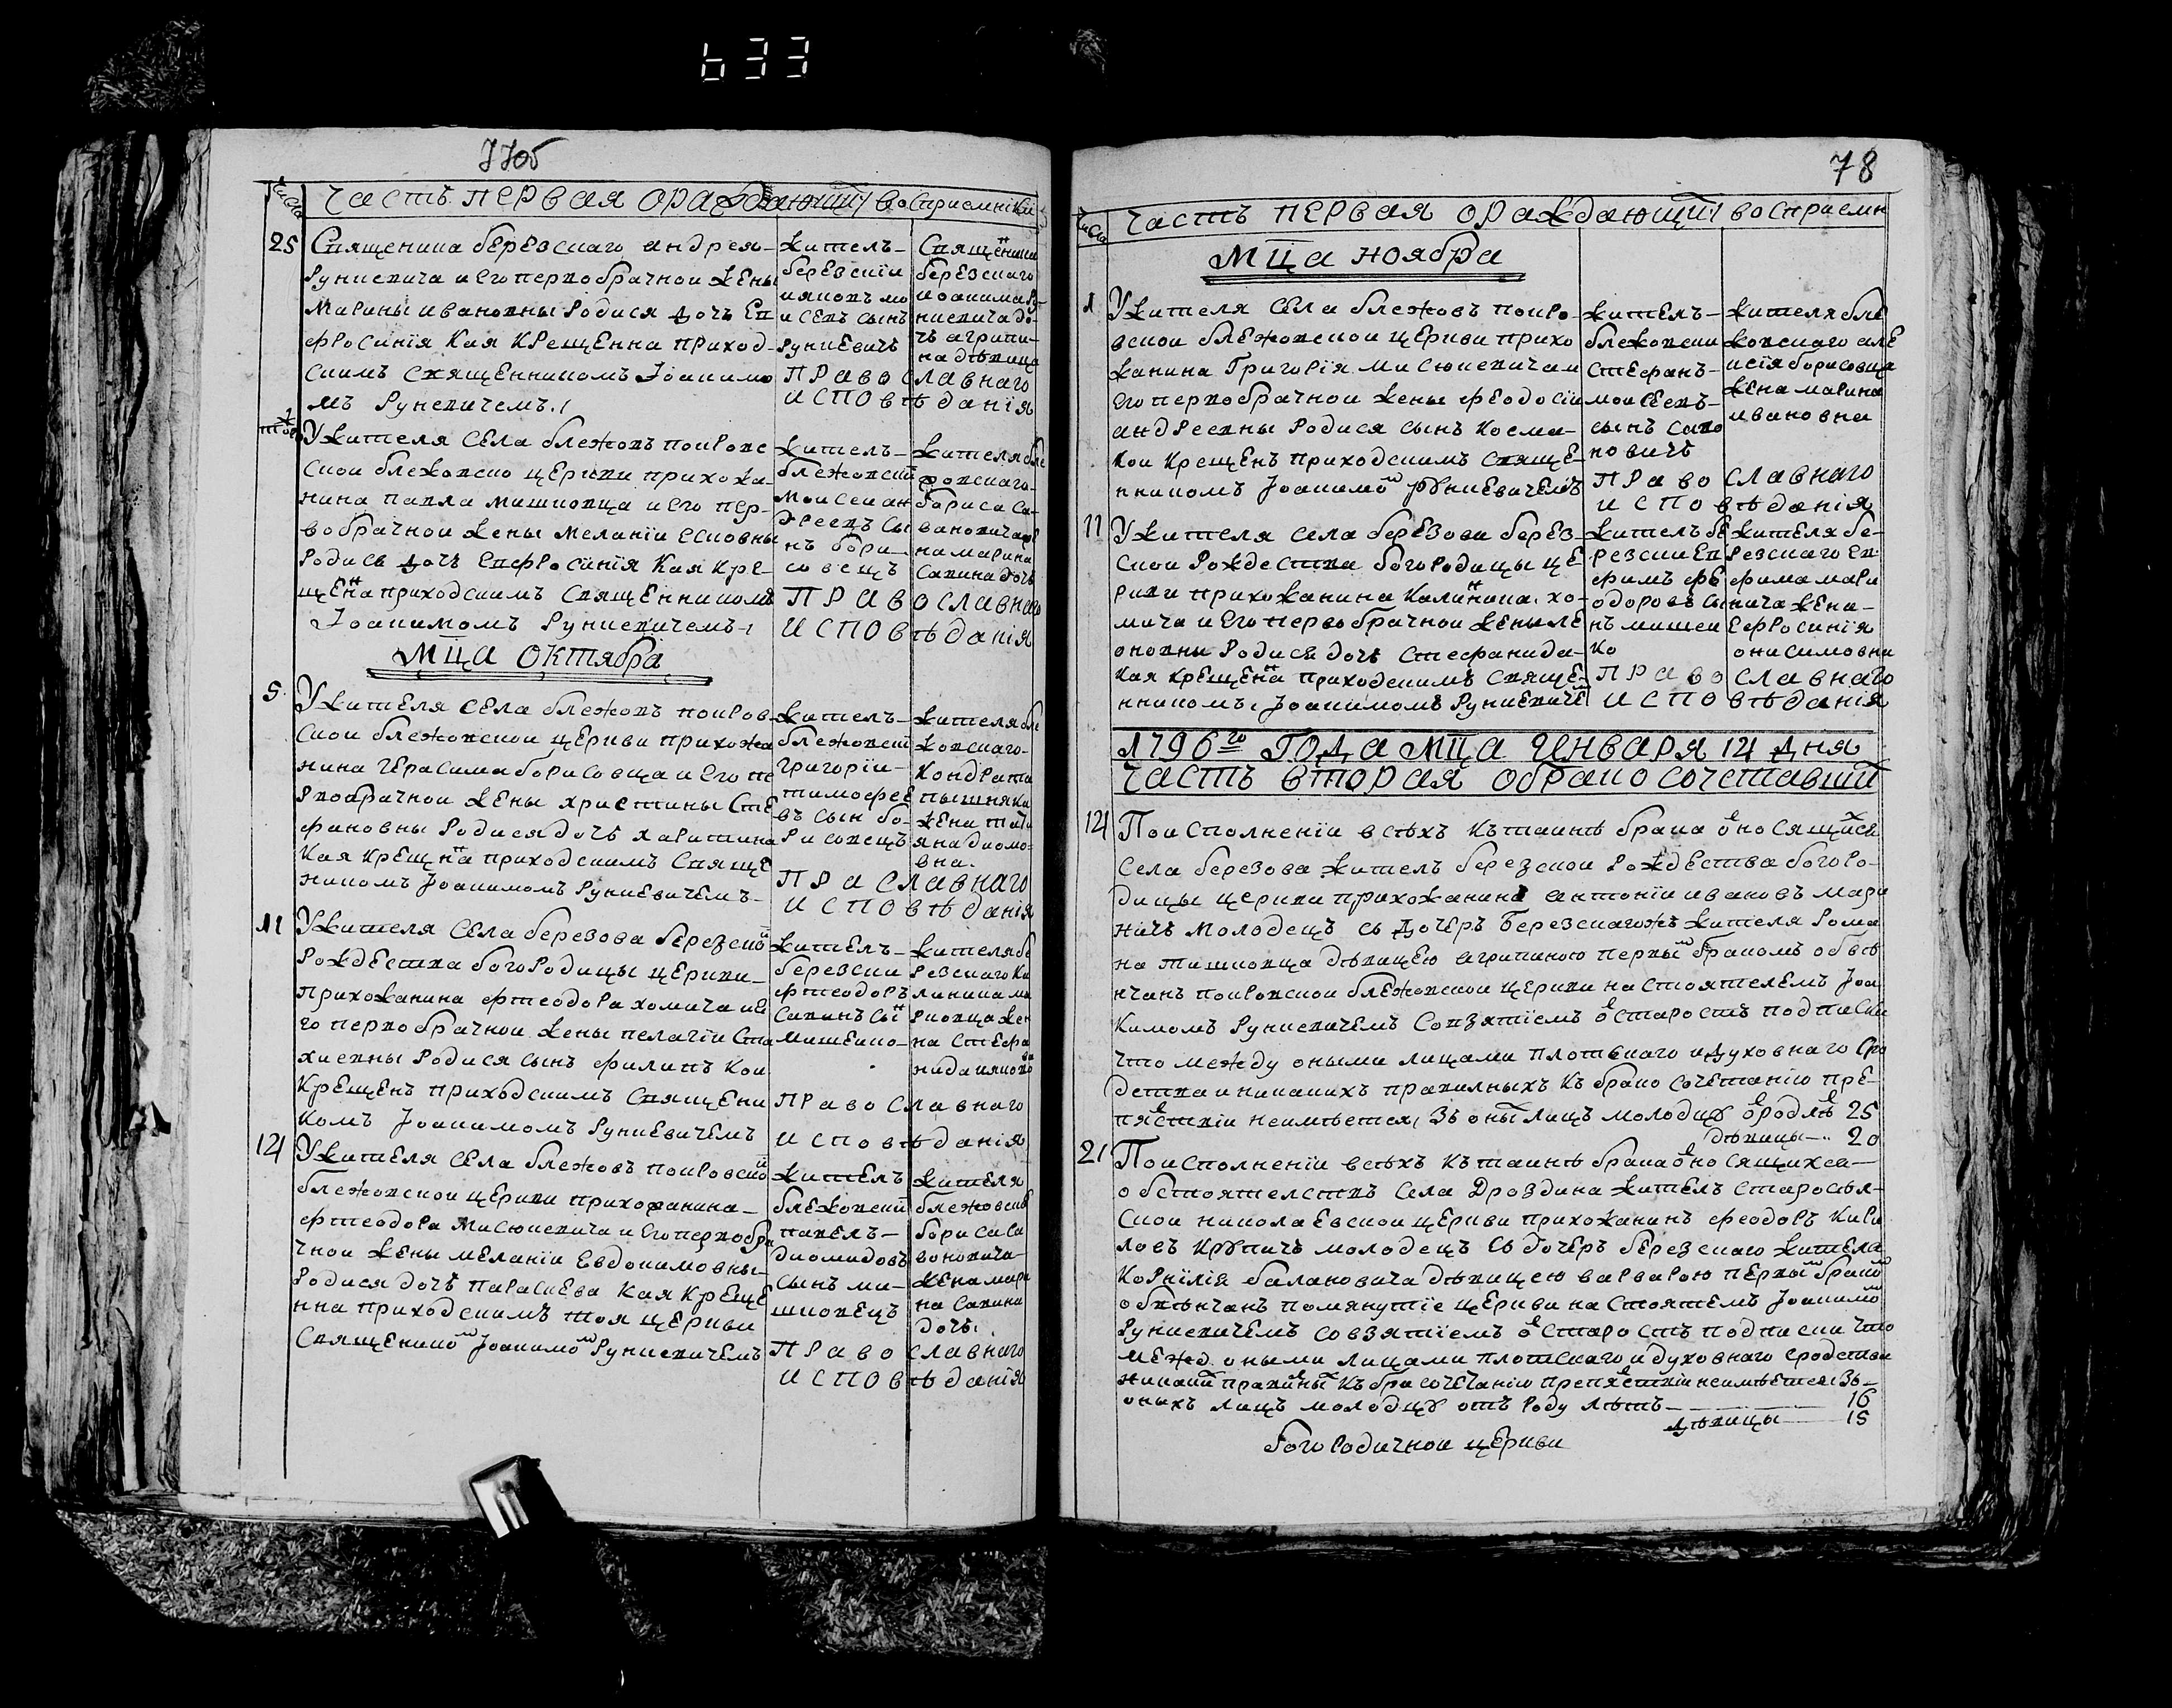 633
77об
число
Часть первая ораждающи восприемники
25
Священика березскаго андрея
Руниевича и его первобрачнои жены
Марины ивановны Родися дочъ Ев
фросинія Кая Крещенна приход
скимъ священникомъ Іоакимо
мъ Руневичемъ
житель
березскіи
ияковъ мо
исеевъ сынъ
Руниевичъ
Священика
березскаго
иоакима Ру
ниевича до
чъ агрипи
на дѣвица
Православнаго
исповѣданія
Ужителя Села блежовъ покровс
скои блежовско церкви прихожа
нина павла мишковца и его пер
вобрачнои жены меланіи Есиовны
Родися дочъ Евфросинія Кая Кре
щенна приходскимъ Священникомъ
Іоакимомъ Руниевичемъ
житель
блежовскіи
моисеи ан
дреевъ сы
нъ бори
совецъ
жителя бле
жовскаго
бориса са
вановича
на марина
Савина дочъ
Православнаго
исповѣданія
Мца Октября
5
Ужителя Села блежовъ покров
скои блежовскои церкви прихожа
нина герасима борисовца и его пе
рвобрачнои жены христины Сте
фановны Родися дочъ харитина
Кая Крещнна приходскимъ Свяще
ником Іоакимомъ Руниевичемъ
житель
блежовскіи
григоріи
тимофее
въ сын бо
рисовецъ
жителя бле
жовскаго
Кондрата
пышняка
жена тати
яна диомо
вна
Праславнаго
исповѣданія
11
Ужителя Села березова березскои
Рождества богородицы церкви
Прихожанина фтеодора хомича ие
го первобрачнои жены пелагіи Ста
хиевны Родися сынъ филипъ Кои
Крещенъ приходскимъ Священи
комъ Іоакимомъ Руниевичемъ
житель
березски
фтеодоръ
Савинъ Сын
мишеико
жителя бе
резскаго Ка
линика ма
риовца жен
на Стефа
нида ияково
вн
Православнаго
исповѣданія
14
Ужителя Села блежовъ покровскои
блежовскои церкви прихожанина
фтеодора Мисюкевича и его первобра
чнои жены меланіи Евдокимовны
Родися дочъ параскева Кая Креще
нна приходскимъ тоя церкви
Священико Іоакимо Руниевичемъ
житель
блежовскіи
павелъ
диомидовъ
сынъ ми
шковецъ
жителя
блежовскаго
бориса Са
воновича
жена мари
на Савина
дочъ
Православнаго
исповѣданія
78
число
Часть первая ораждающи восприемн
Мца ноября
1
Ужителя Села блежовъ покро
вскои блежовскои церкви прихо
жанина Григорія Мисюкевича и
его первобрачнои жены феодосіи
андреевны Родися сынъ Косма
Кои Крещенъ приходскимъ Свяще
нникомъ Іоакимо Руниевичемъ
житель
блежовски
Стефанъ
моисеевъ
сынъ Саво
новичъ
жителя бле
жовскаго але
ксія борисовца
жена марина
ивановна
Православнаго
исповѣданія
11
Ужителя села березова берез
скои Рождества богородицы це
ркви прихожанина Калинника хо
мича и его первобрачнои жены Ле
оновны Родися дочъ Стефанида
Кая крещенна приходскимъ Свяще
нникомъ Іоакимомъ Руниевиче
житель бе
резски ев
фимъ фе
одоровъ сы
нъ мишеи
ко
жителя бе
резскаго ев
фима мари
нича жена
Ефросинія
онисимовна
Православнаго
исповѣданія
1796го Года Мца Генваря 14 дня
Часть вторая обрако сочетавши
14
Поисполненіи всѣхъ Къ таинѣ брака относящихся
Села березова житель березскои рождества богоро
дицы церкви прихожанинъ антоніи ивановъ мари
ничъ Молодецъ съ дочерь березскагожъ жителя Рома
на тишковца дѣвицею агрипиною первы бракомъ обвѣ
нчанъ покровскои блежовскои церкви настоятелемъ Іоа
Кимомъ Руниевичемъ Совзятіемъ о старостъ подписки
что между оными лицами плотскаго и духовнаго Сро
дства иникакихъ правилныхъ Къ брако сочетанію пре
пятствіи неимѣется, Зъ оны лицъ молодцу отроду лѣ 25
дѣвицы 20
21
Поисполненіи всѣхъ Къ таинѣ брака относящихся
обстоятелствъ Села Дроздина жителъ старосѣл
скои николаевскои церкви прихожанинъ феодоръ Кири
ловъ Крупичъ молодецъ Съ дочерь березскаго жителя
Корнилія балановича дѣвицею варварою первы бра
обвѣнчанъ помянутіе церкви на стоятемъ Іоакимо
Руниевичемъ совзятіемъ о старостъ подписки что
межд оными лицами плотскаго и духовнаго сродства
никаки правилны Къ бра сочечанію препятствіи неимѣется Зъ
оныхъ лицъ молодцу отъ роду лѣтъ 16
дѣвицы 15
богородичнои церкви